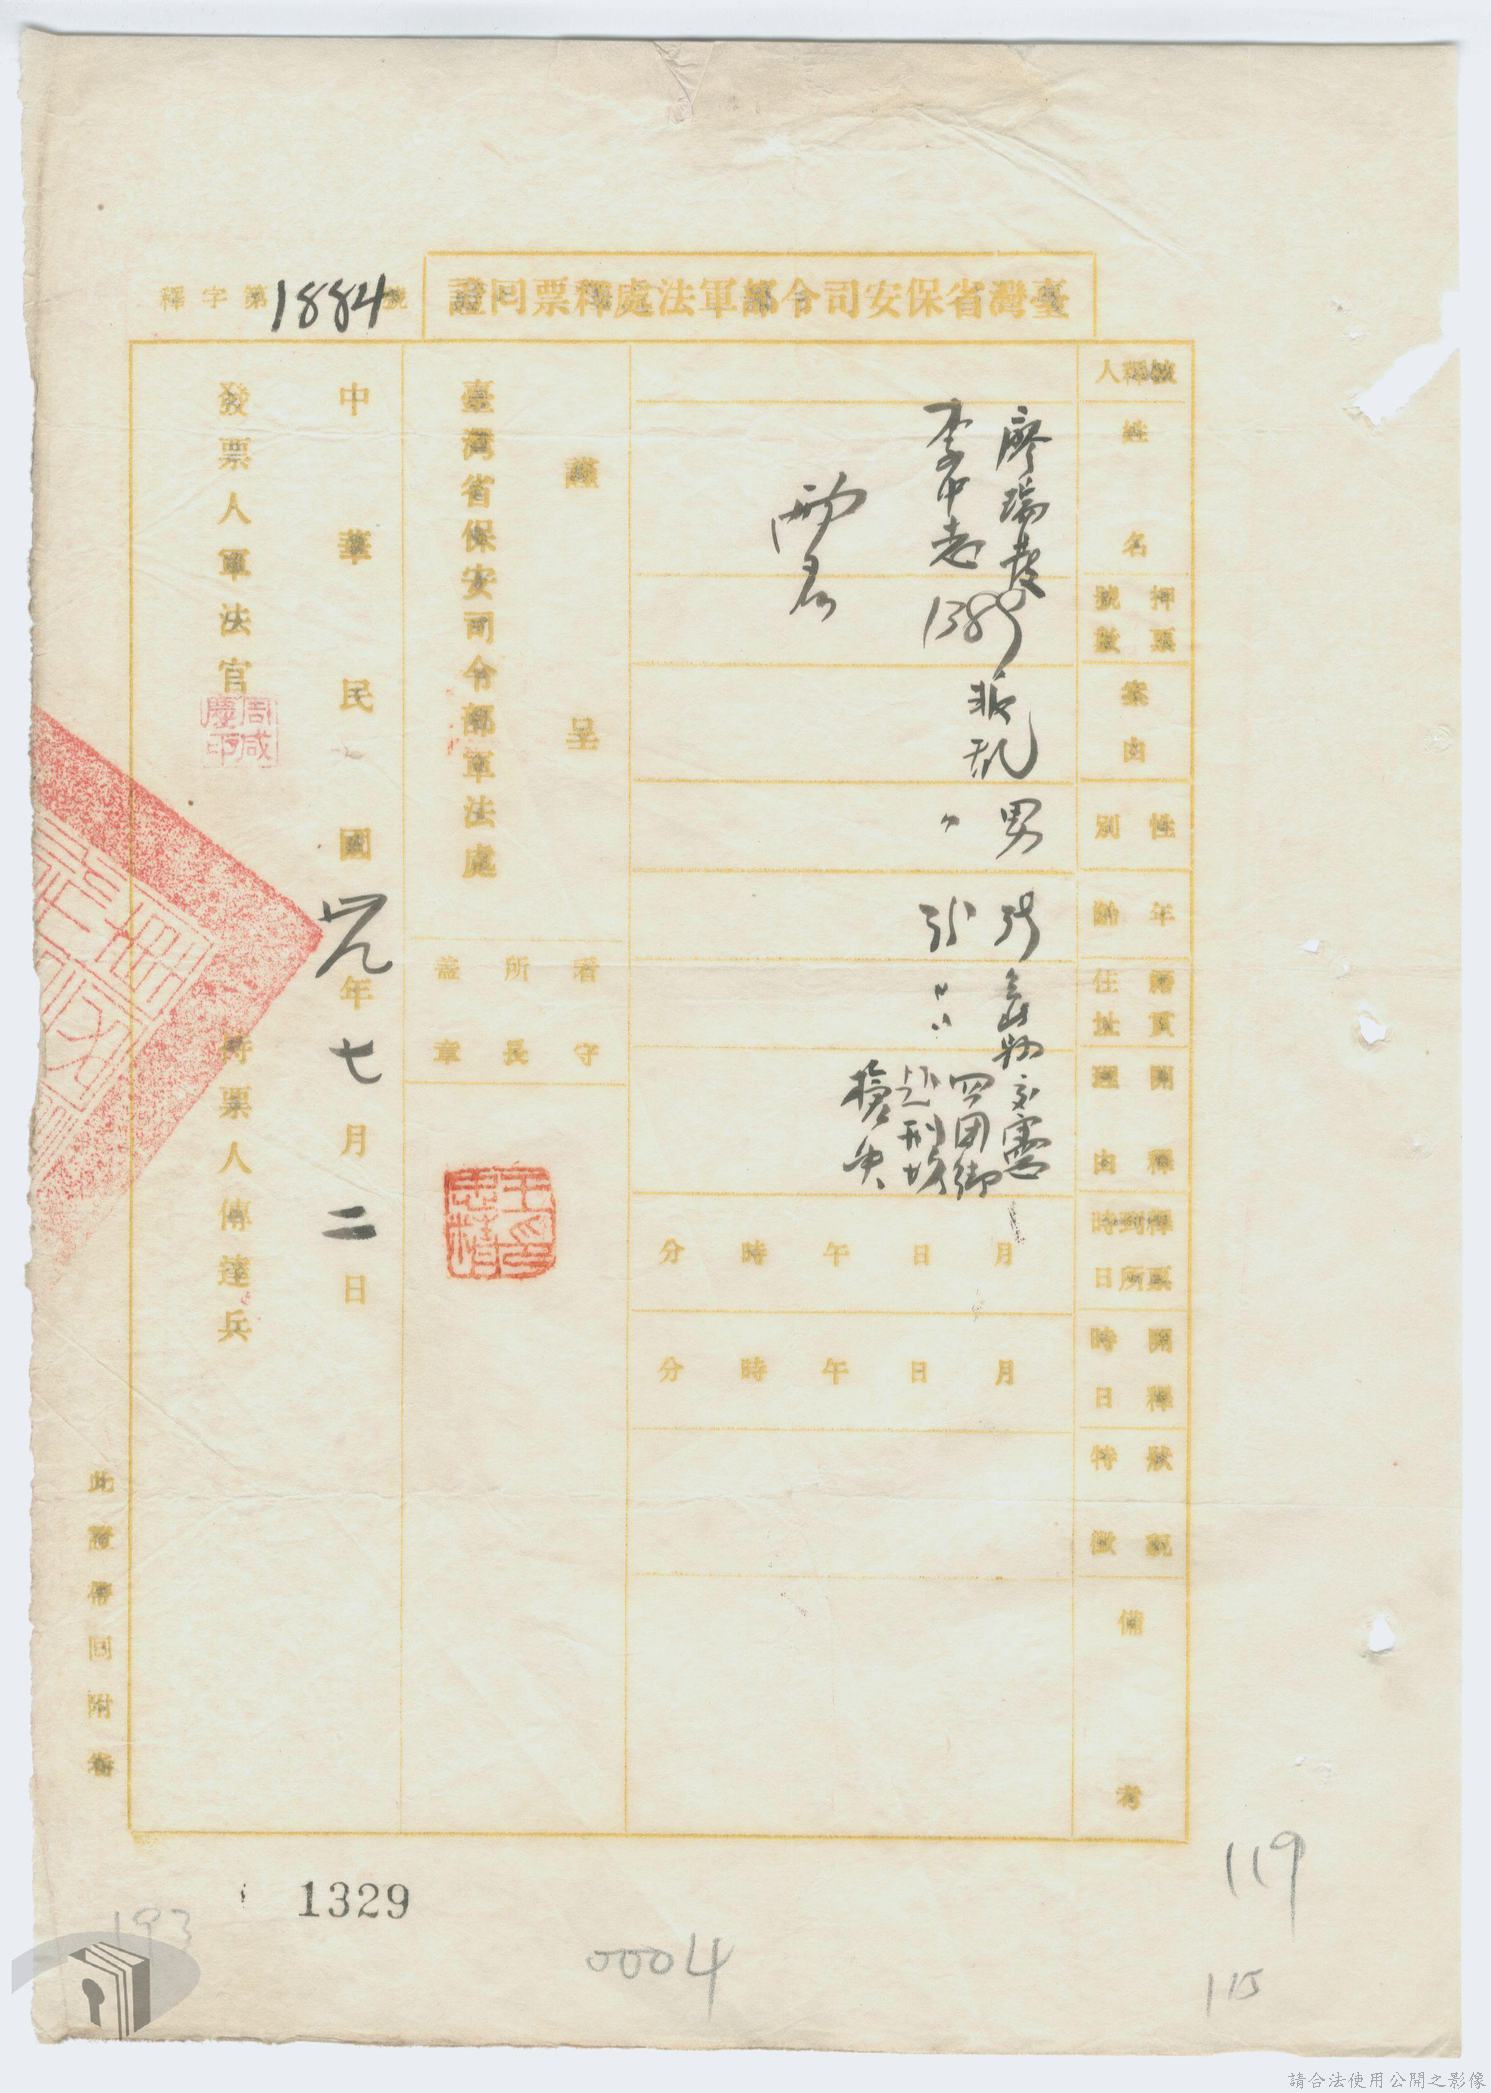 臺灣省保安司令部軍法處釋票回證
釋字第1884號
被釋人
姓名
廖瑞發
李中志
兩名
押票號數
1389
案由
叛亂
性別
男
〃
年齡
籍貫住址
台北
〃〃
開釋理由
交憲
四团綁
赴刑场
槍决
釋票到所時日
月 日 午 時 分
開釋時日
月 日 午 時 分
狀貌特徵
備考
謹呈
臺灣省保安司令部軍法處
看守所長蓋章
中華民國卅九年七月二日
發票人軍法官
周咸慶印
持票人傳達兵
此證帶回附卷
1329
193
0004
119
115
請合法使用公開之影像